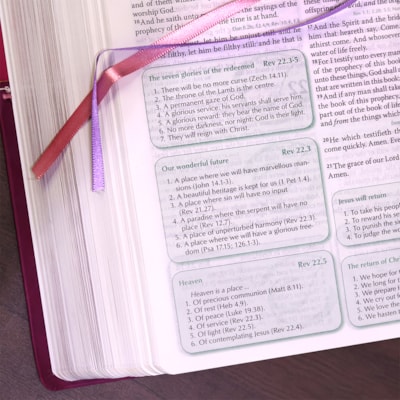 worship God.
10And he saith unto
the sayings of the
prophecy of
the time is at hand.
still; and he
filthy, let him be filthy still: and he that is
17And the Spirit and the
him that heareth say, Come.
athirst come. And whosoever
water of life freely.
18For I testify unto every man
of the prophecy of this book
unto these things, God shall
that are written in this book
19And if any man shall take
the book of this prophecy,
part out of the book of life
and from the things which
20He which testifieth
come quickly. Amen. Even
21The grace of our Lord
Amen.
The seven glories of the redeemed Rev 22.3-5
1. There will be no more curse (Zech 14.11).
2. The throne of the Lamb is the centre.
3. A permanent gaze of God.
4. A glorious service: his servants shall serve him.
5. A glorious reward: they bear the name of God.
6. No more darkness, nor night: God is their light.
7. They will reign with Christ.
Our wonderful future Rev 22.3
1. A place where we will have marvellous man-
sions (John 14.1-3).
2. A beautiful heritage is kept for us (1 Pet 1.4).
3. A place where sin will have no input
(Rev 21.27).
4. A paradise where the serpent will have no
place (Rev 12.7).
5. A place of unperturbed harmony (Rev 22.3)
6. A place where we will have a glorious free-
dom (Psa 17.15; 126.1-3).
Heaven Rev 22.5
Heaven is a place ...
1. Of precious communion (Matt 8.11).
2. Of rest (Heb 4.9).
3. Of peace (Luke 19.38).
4. Of service (Rev 22.3).
5. Of light (Rev 22.5).
6. Of contemplating Jesus (Rev 22.4).
Jesus will return
1. To take his people
2. To reward his
3. To punish the
4. To judge the
The return of Christ
1. We hope for
2. We long for
3. We prepare
4. We cry out
5. We love the
6. We hasten